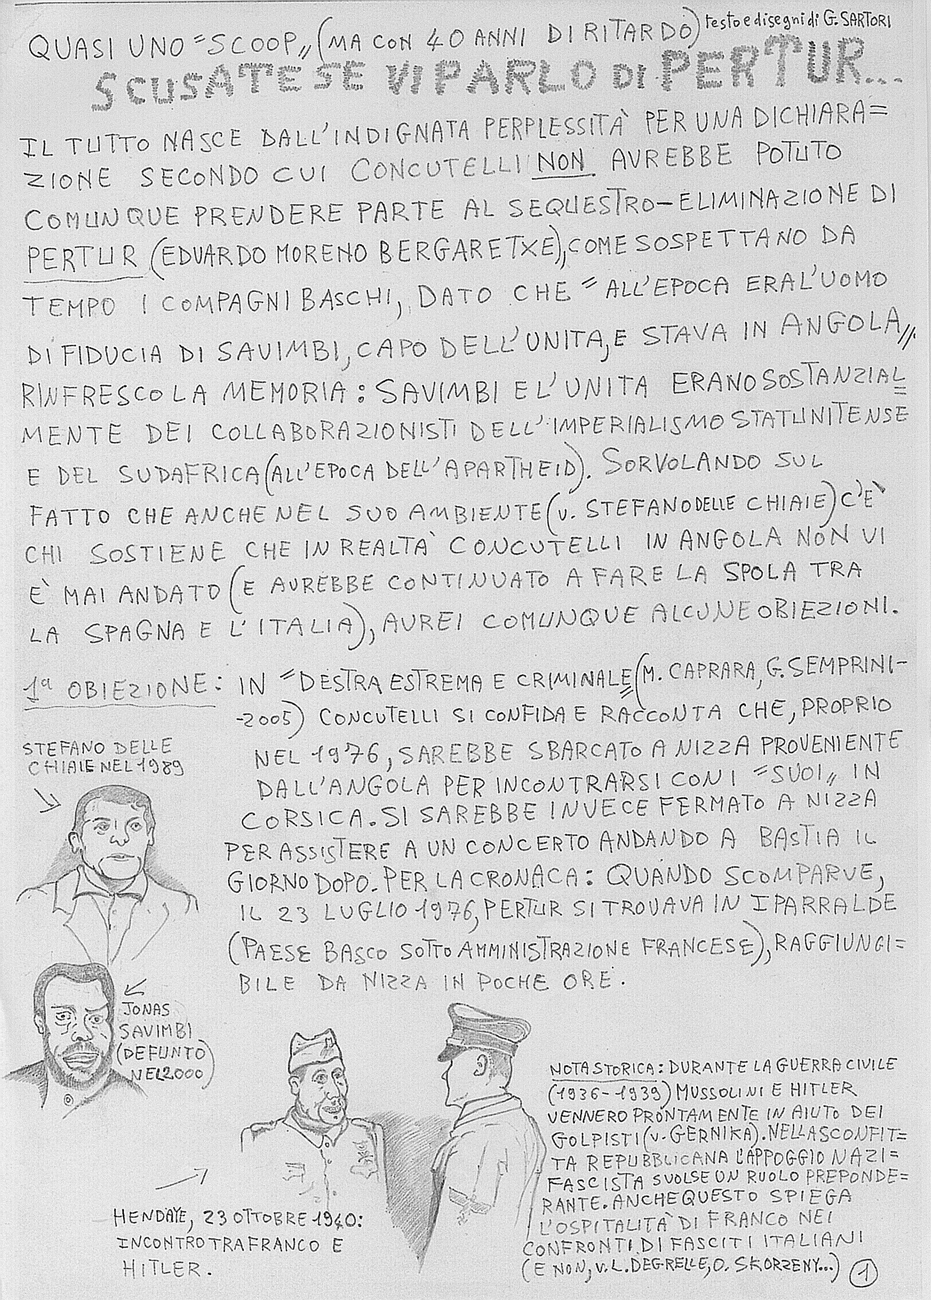 testo e disegni di G. SARTORI
QUASI UNO "SCOOP" (MA CON 40 ANNI DI RITARDO)
SCUSATE SE VI PARLO DI PERTUR...
IL TUTTO NASCE DALL'INDIGNATA PERPLESSITÀ PER UNA DICHIARA=
ZIONE SECONDO CUI CONCUTELLI NON AVREBBE POTUTO
COMUNQUE PRENDERE PARTE AL SEQUESTRO-ELIMINAZIONE DI
PERTUR (EDUARDO MORENO BERGARETXE), COME SOSPETTANO DA
TEMPO I COMPAGNI BASCHI, DATO CHE "ALL'EPOCA ERA L'UOMO
DI FIDUCIA DI SAVIMBI, CAPO DELL'UNITA, E STAVA IN ANGOLA".
RINFRESCO LA MEMORIA: SAVIMBI E L'UNITA ERANO SOSTANZIAL=
MENTE DEI COLLABORAZIONISTI DELL'IMPERIALISMO STATUNITENSE
E DEL SUDAFRICA (ALL'EPOCA DELL'APARTHEID). SORVOLANDO SUL
FATTO CHE ANCHE NEL SUO AMBIENTE (v. STEFANO DELLE CHIAIE) C'E'
CHI SOSTIENE CHE IN REALTÀ CONCUTELLI IN ANGOLA NON VI
È MAI ANDATO (E AVREBBE CONTINUATO A FARE LA SPOLA TRA
LA SPAGNA E L'ITALIA), AVREI COMUNQUE ALCUNE OBIEZIONI.
1ª OBIEZIONE: IN "DESTRA ESTREMA E CRIMINALE" (M. CAPRARA, G. SEMPRINI-
-2005) CONCUTELLI SI CONFIDA E RACCONTA CHE, PROPRIO
NEL 1976, SAREBBE SBARCATO A NIZZA PROVENIENTE
DALL'ANGOLA PER INCONTRARSI CON I "SUOI" IN
CORSICA. SI SAREBBE INVECE FERMATO A NIZZA
PER ASSISTERE A UN CONCERTO ANDANDO A BASTIA IL
GIORNO DOPO. PER LA CRONACA: QUANDO SCOMPARVE,
IL 23 LUGLIO 1976, PERTUR SI TROVAVA IN IPARRALDE
(PAESE BASCO SOTTO AMMINISTRAZIONE FRANCESE), RAGGIUNGI=
BILE DA NIZZA IN POCHE ORE.
STEFANO DELLE
CHIAIE NEL 1989
JONAS
SAVIMBI
(DEFUNTO
NEL 2000)
HENDAYE, 23 OTTOBRE 1940:
INCONTRO TRA FRANCO E
HITLER.
NOTA STORICA: DURANTE LA GUERRA CIVILE
(1936-1939) MUSSOLINI E HITLER
VENNERO PRONTAMENTE IN AIUTO DEI
GOLPISTI (v. GERNIKA). NELLA SCONFIT=
TA REPUBBLICANA L'APPOGGIO NAZI=
FASCISTA SVOLSE UN RUOLO PREPONDE=
RANTE. ANCHE QUESTO SPIEGA
L'OSPITALITÀ DI FRANCO NEI
CONFRONTI DI FASCITI ITALIANI
(E NON, v. L. DEGRELLE, O. SKORZENY...) 1